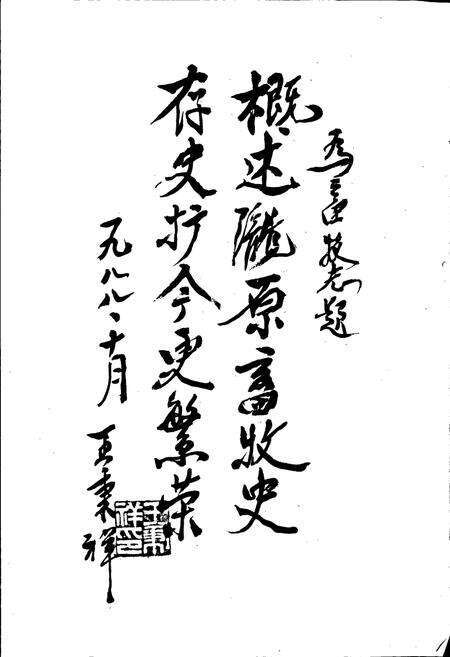 为畜牧志题
概述隴原畜牧史
存史扩今更繁荣
一九八八、十月
王秉祥
王秉祥印